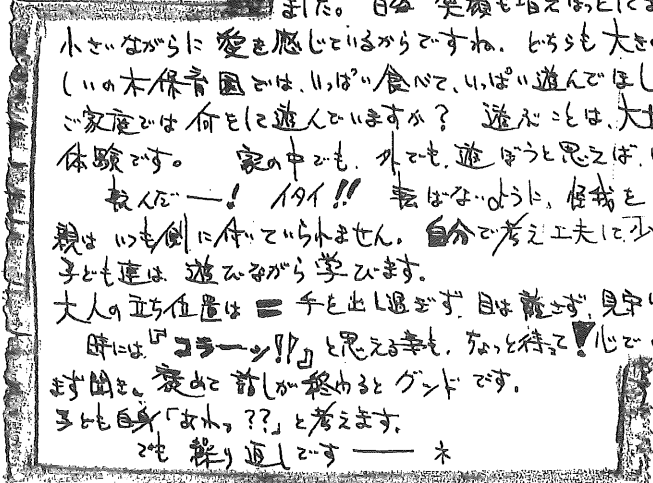 ました。 日毎 笑顔も増えほっとしてま
小さいながらに 愛を感じているからですね。 どちらも大き
しいの木保育園では、いっぱい食べて、いっぱい遊んでほし
ご家庭では何をして遊んでいますか？ 遊ぶことは、大
体験です。 家の中でも、外でも、遊ぼうと思えば、
転んだー！ イタイ!! 転ばないように、怪我を
親は いつも側に付いていられません。 自分で考え工夫して、少
子ども達は、遊びながら学びます。
大人の立ち位置は = 手を出し過ぎず、目は離さず、見守
時には、『コラーッ!!』と思える事も、ちょっと待って！心で
まず聞き、褒めて 話しが終わるとグンドです。
子ども自身「あれっ？？」と考えます。
でも 繰り返しです ー ネ